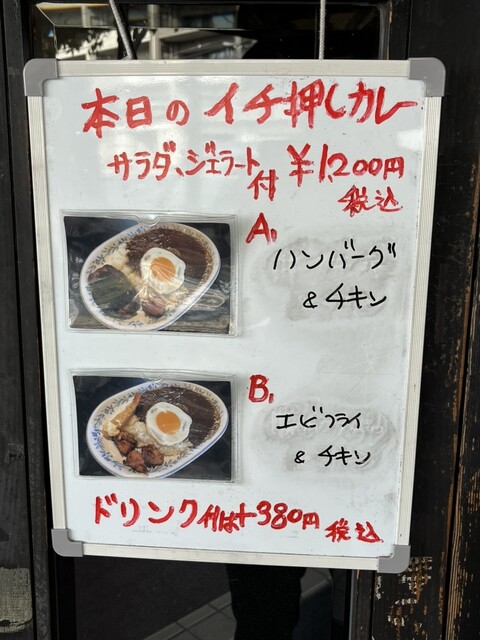 本日のイチ押しカレー
サラダ、ジェラート付 ¥1,200円
税込
A.
ハンバーグ
& チキン
B.
エビフライ
& チキン
ドリンク付は+380円 税込